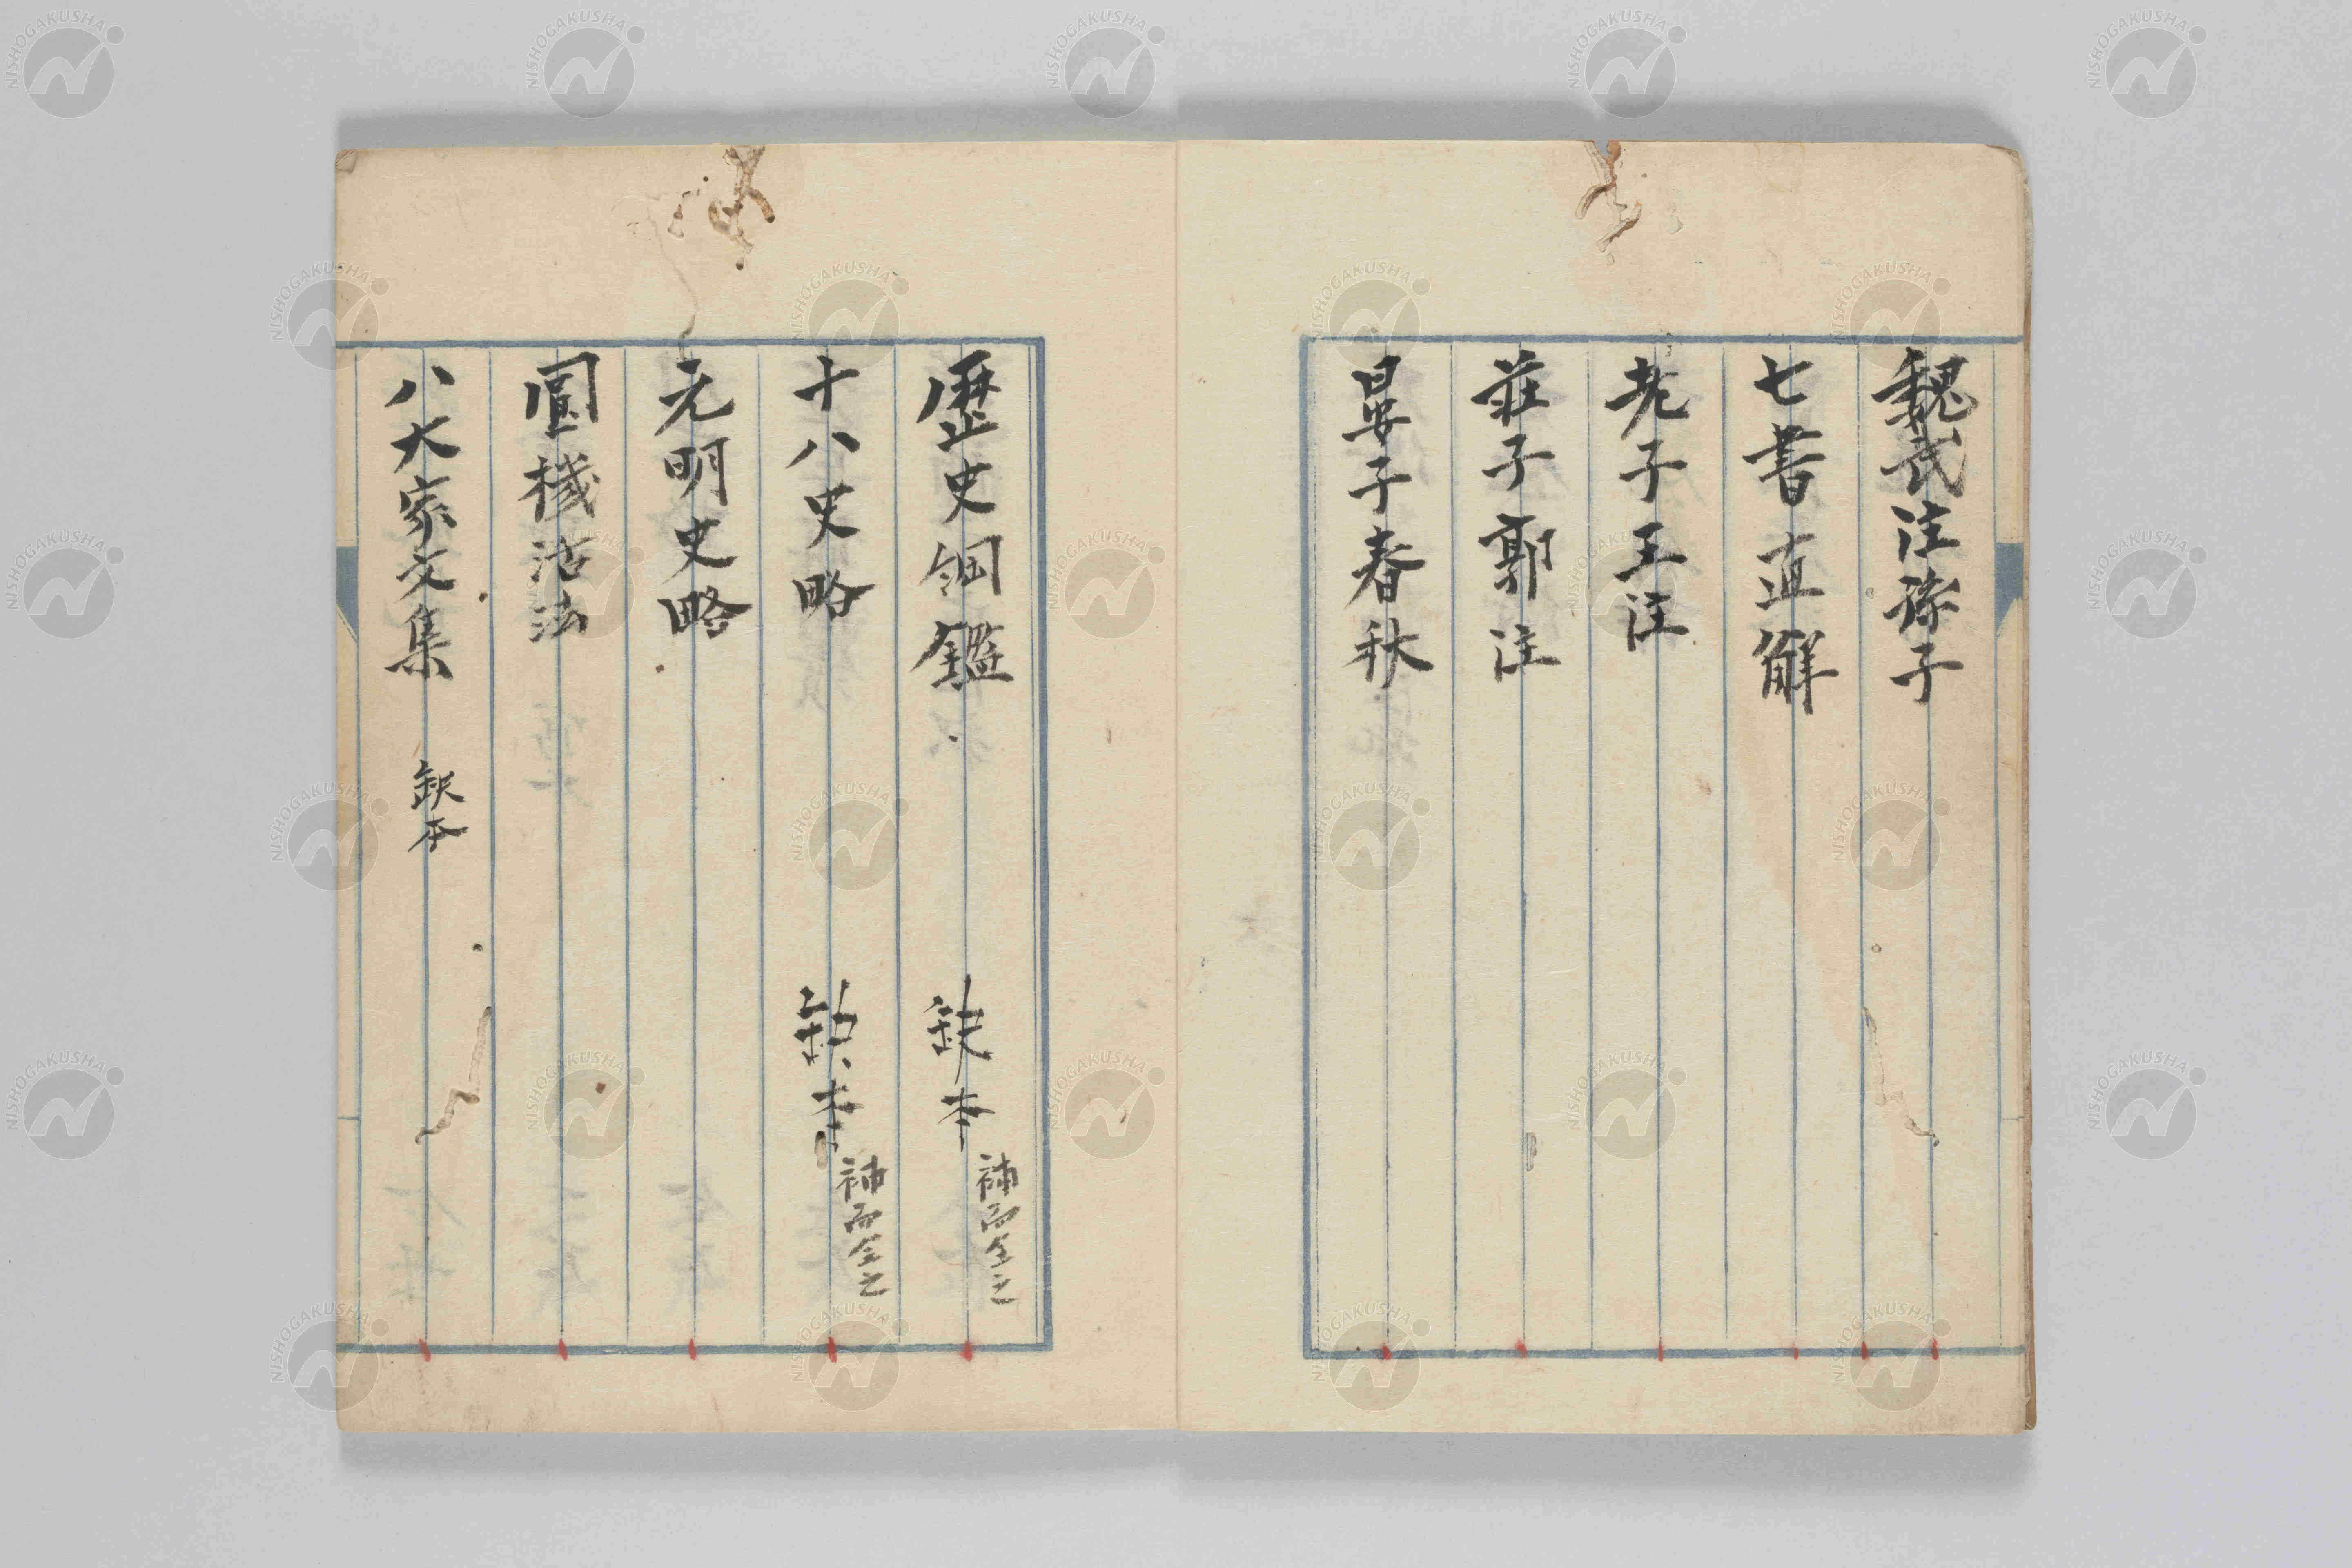 魏武注孫子
七書直解
老子王注
莊子郭注
晏子春秋
歴史綱鑑 缺本 補而全之
十八史略 缺本 補而全之
元明史略
圓機活法
八大家文集 缺本
NISHOGAKUSHA